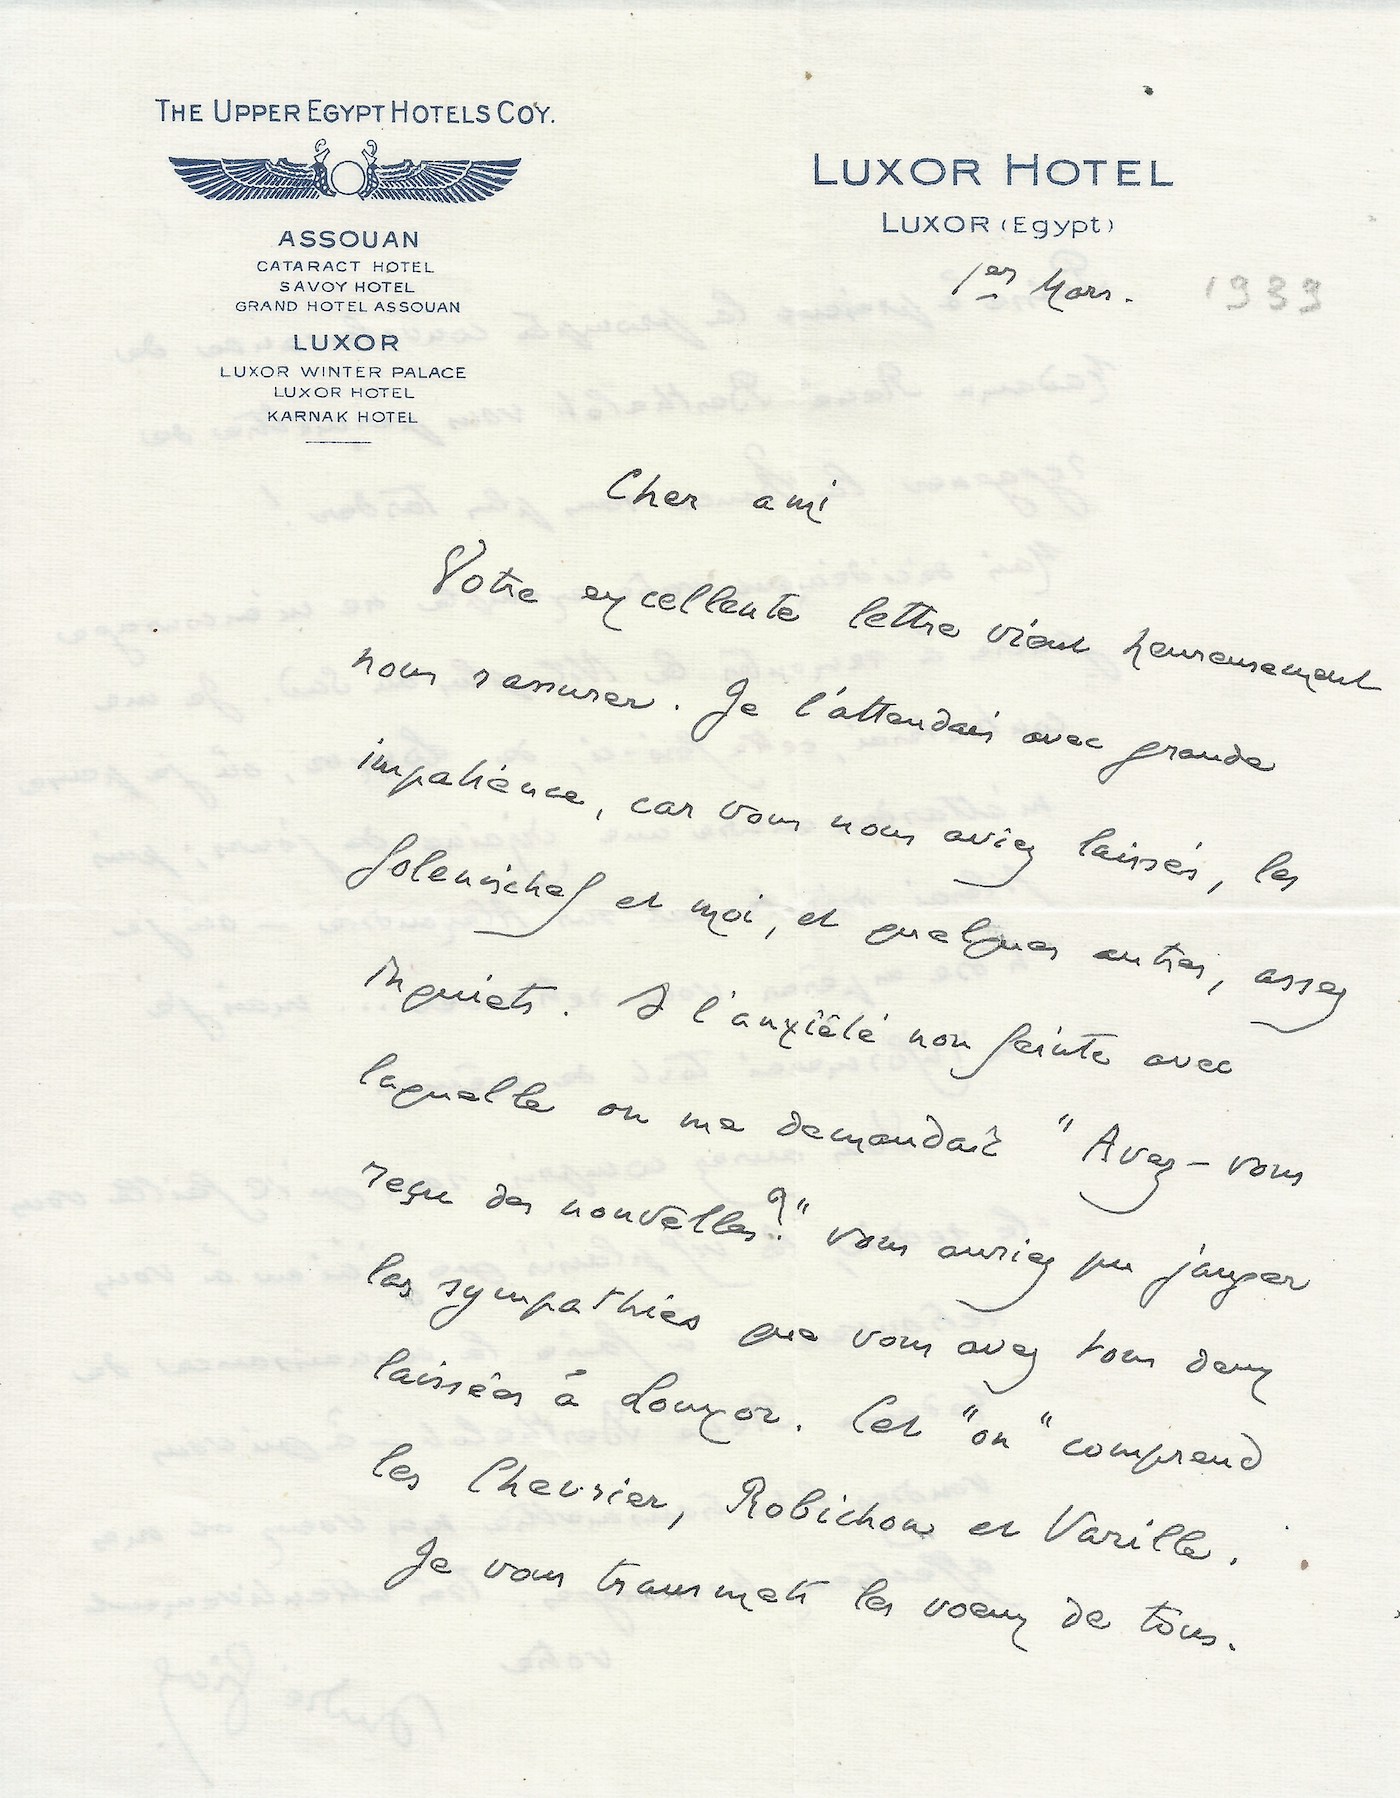 THE UPPER EGYPT HOTELS COY.
ASSOUAN
CATARACT HOTEL
SAVOY HOTEL
GRAND HOTEL ASSOUAN
LUXOR
LUXOR WINTER PALACE
LUXOR HOTEL
KARNAK HOTEL
LUXOR HOTEL
LUXOR (Egypt)
1er Mars. 1939
Cher ami
Votre excellente lettre vient heureusement
nous rassurer. Je l'attendais avec grande
impatience, car vous nous aviez laissés, les
Golenischef et moi, et quelques autres, assez
inquiets. A l'anxiété non feinte avec
laquelle on me demandait "Avez-vous
reçu des nouvelles?" vous auriez pu jauger
les sympathies que vous avez tous deux
laissées à Louxor. Cet "on" comprend
les Chevrier, Robichon et Varille.
Je vous transmets les voeux de tous.